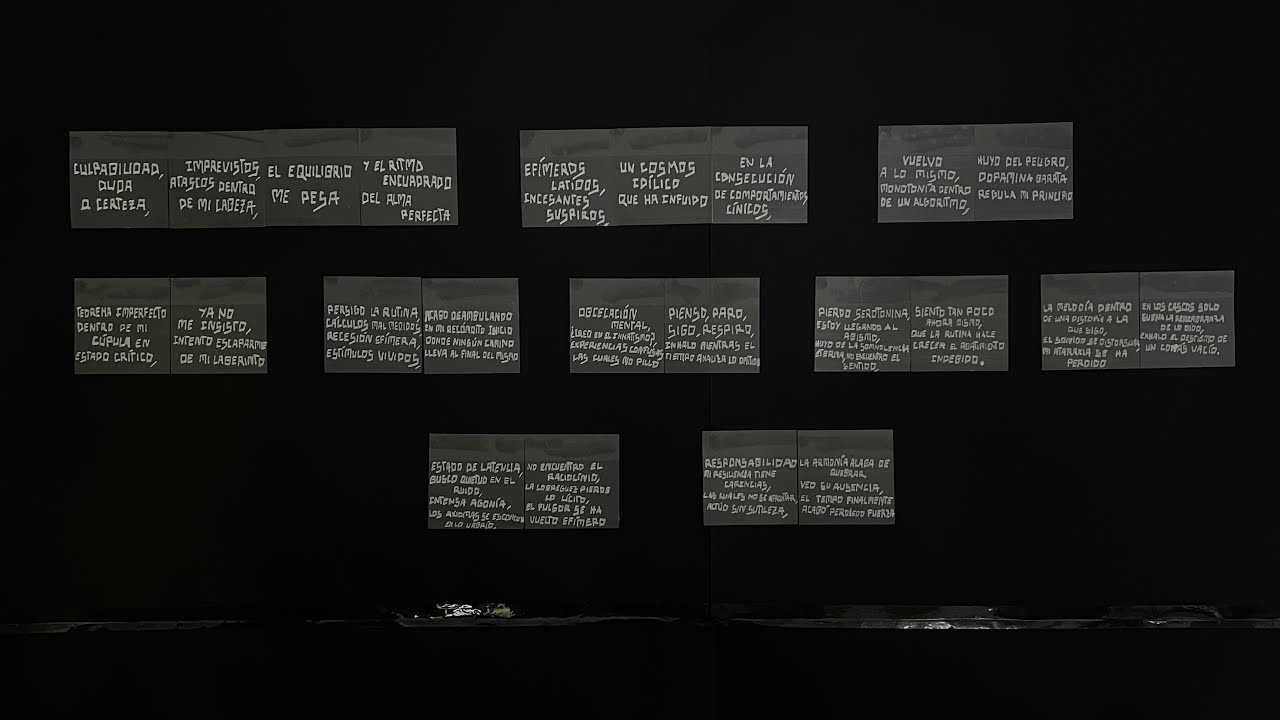 CULPABILIDAD,
DUDA
O CERTEZA,
IMPREVISTOS,
ATASCOS DENTRO
DE MI CABEZA,
EL EQUILIBRIO
ME PESA
Y EL RITMO
ENCUADRADO
DEL ALMA
PERFECTA
EFÍMEROS
LATIDOS,
INCESANTES
SUSPIROS,
UN COSMOS
IDÍLICO
QUE HA INFUIDO
EN LA
CONSECUCIÓN
DE COMPORTAMIENTOS
CÍNICOS,
VUELVO
A LO MISMO,
MONOTONÍA DENTRO
DE UN ALGORITMO,
HUYO DEL PELIGRO,
DOPAMINA BARATA
REGULA MI PRINCIPIO
TEOREMA IMPERFECTO
DENTRO DE MI
CÚPULA EN
ESTADO CRÍTICO,
YA NO
ME INSISTO,
INTENTO ESCAPARME
DE MI LABERINTO
PERSIGO LA RUTINA,
CÁLCULOS MAL MEDIDOS,
RECESIÓN EFÍMERA,
ESTÍMULOS VIVIDOS,
ACABO DEAMBULANDO
EN MI RECÓNDITO INICIO
DONDE NINGÚN CAMINO
LLEVA AL FINAL DEL MISMO
OBCECACIÓN
MENTAL,
¿CREO EN EL INNATISMO?
EXPERIENCIAS CONFUSAS
LAS CUALES NO PILLO
PIENSO, PARO,
SIGO, RESPIRO,
INHALO MIENTRAS EL
TIEMPO ANALIZA LO OMITIDO
PIERDO SEROTONINA,
ESTOY LLEGANDO AL
ABISMO,
HUYO DE LA SOMNOLENCIA
ETERNA, NO ENCUENTRO EL
SENTIDO,
SIENTO TAN POCO
AHORA MISMO,
QUE LA RUTINA HACE
CRECER EL ABATIMIENTO
INDEBIDO.
LA MELODÍA DENTRO
DE UNA DISTOPÍA A LA
QUE SIGO,
EL SONIDO SE DISTORSIONA,
MI ATARAXIA SE HA
PERDIDO
EN LOS CASCOS SOLO
SUENA LA REMEMBRANZA
DE LO OIDO,
EXHALO EL DESTIEMPO DE
UN COMPÁS VACÍO.
ESTADO DE LATENCIA,
BUSCO QUIETUD EN EL
RUIDO,
INTENSA AGONÍA,
LOS AXIOMAS SE ESCONDEN
EN LO UMBRÍO.
NO ENCUENTRO EL
RACIOCINIO,
LA LOBREGUEZ PIERDE
LO LÍCITO,
EL PULSOR SE HA
VUELTO EFÍMERO
RESPONSABILIDAD
MI RESILIENCIA TIENE
CARENCIAS,
LAS CUALES NO SE AFRONTAR,
ACTÚO SIN SUTILEZA,
LA ARMONÍA ACABA DE
QUEBRAR
VEO SU AUSENCIA,
EL TEMPO FINALMENTE
ACABÓ PERDIENDO FUERZA